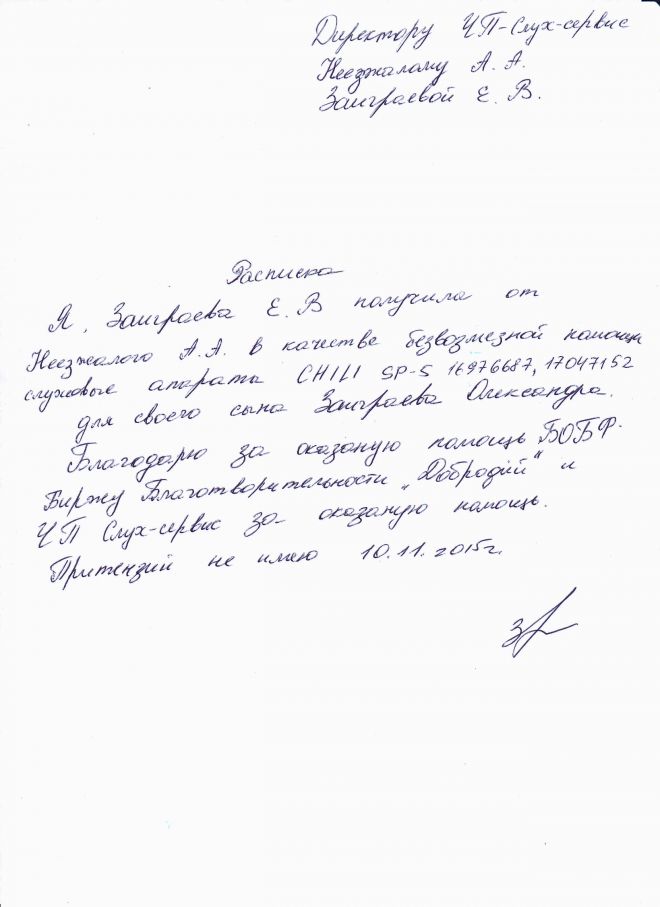 Директору ЧП-Слух-сервис
Неезжалому А. А.
Заиграевой Е. В.
Расписка
Я, Заиграева Е. В получила от
Неезжалого А.А. в качестве безвозмезной помощи
слуховые апараты CHILI SP-5 16976687, 17047152
для своего сына Заиграева Олександра.
Благодарю за оказаную помощь БОБФ.
Биржу Благотворительности „Добродій“ и
ЧП Слух-сервис за- оказаную помощь.
Притензий не имею 10.11.2015г.